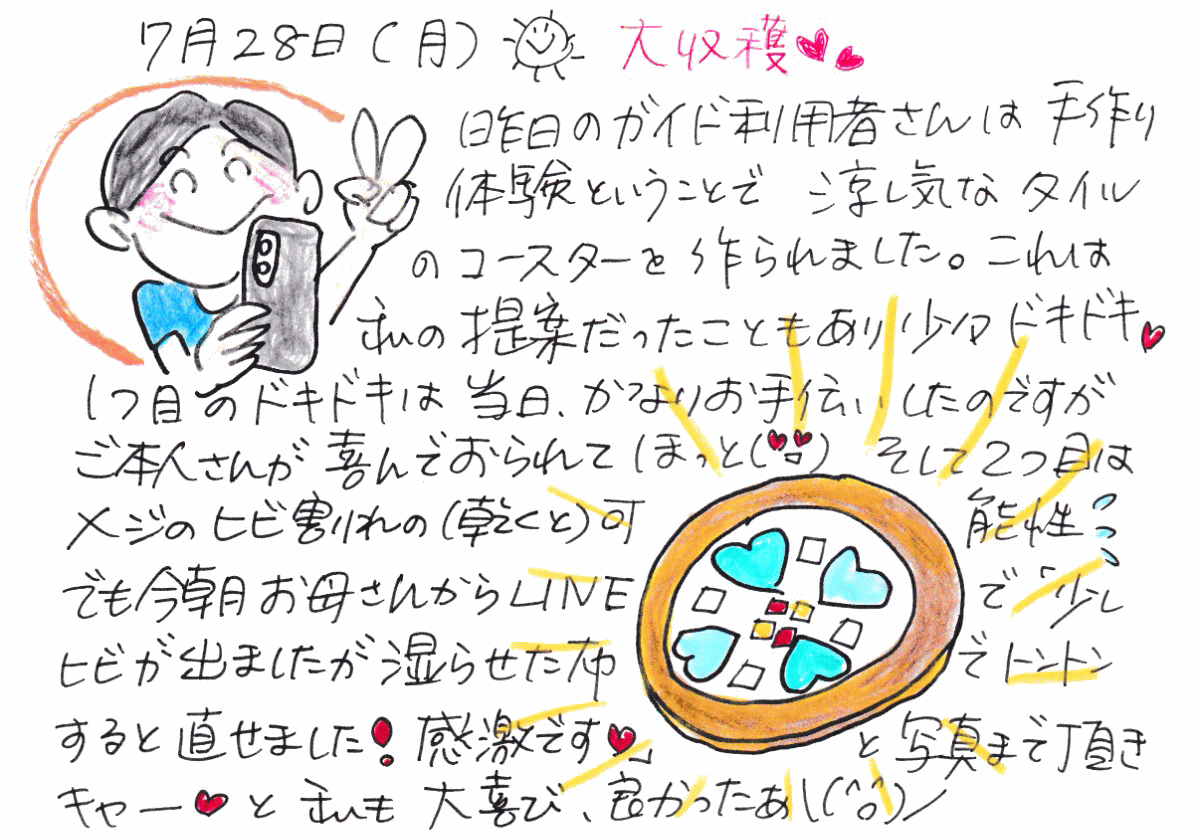 7月28日(月) 大収穫
昨日のガイド利用者さんは 手作り
体験ということで 涼し気な タイル
のコースターを 作られました。これは
私の 提案だったこともあり 少々 ドキドキ
1つ目のドキドキは 当日、かなりお手伝いしたのですが
ご本人さんが 喜んでおられて ほっと そして2つ目は
メジのヒビ割れの(乾くと)可能性
でも今朝 お母さんからLINEで「少し
ヒビが出ましたが湿らせた布でトントン
すると直せました! 感激です」と写真まで頂き
キャー と 私も 大喜び、良かったぁ\(^o^)/